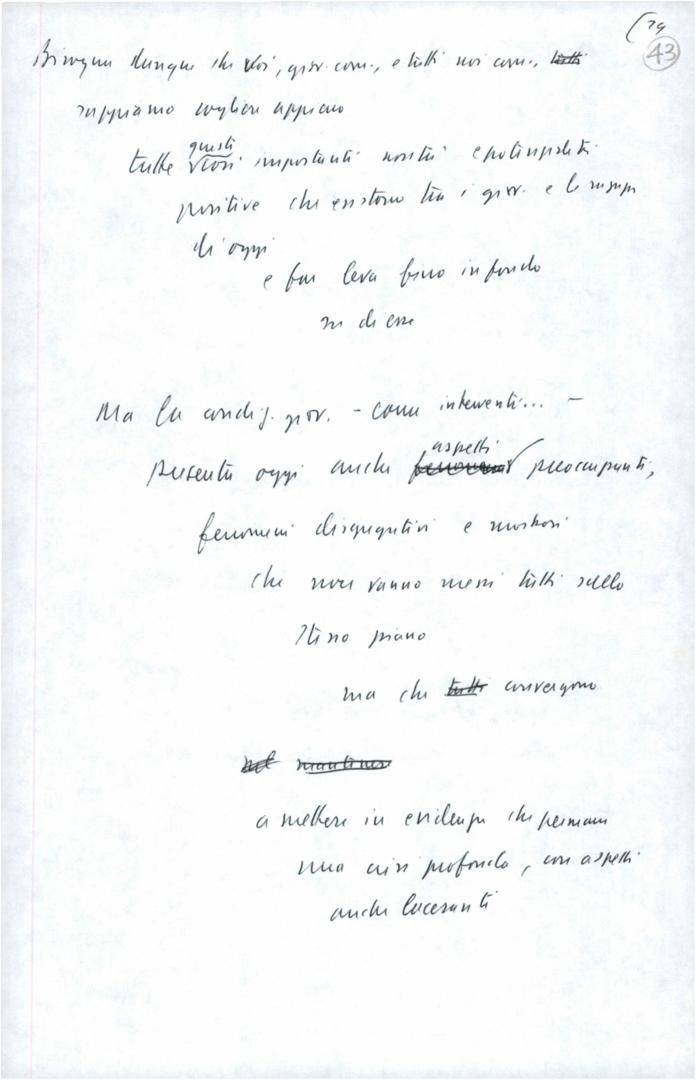 (79
43
Bisogna dunque che voi, giov. com., e tutti noi com., tutti
sappiamo cogliere appieno
questi
tutte importanti novità e potenzialità
positive che esistono tra i giov. e le ragazze
di oggi
e far leva fino in fondo
su di esse
Ma la condiz. giov. - come interventi... -
aspetti
presenta oggi anche fenomeni preoccupanti,
fenomeni disgregativi e morbosi
che non vanno messi tutti sullo
stesso piano
ma che tutti convergono
nel
a mettere in evidenza che permane
una crisi profonda, con aspetti
anche laceranti